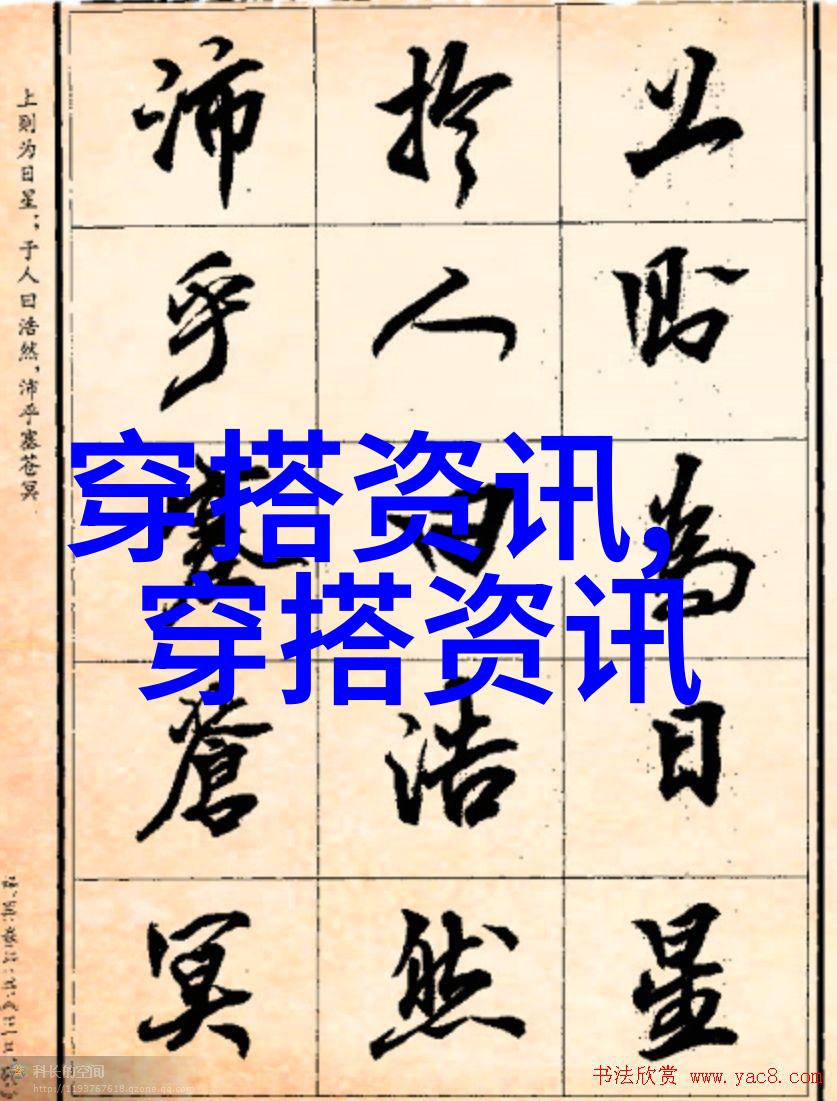 上则为日星；于人曰浩然，沛乎塞苍冥
上則為日星
於人曰浩然
沛乎塞蒼冥
穿搭资讯，
穿搭资讯
科长的空间
http://1193767618.qzone.qq.com
书法欣赏 www.yac8.com